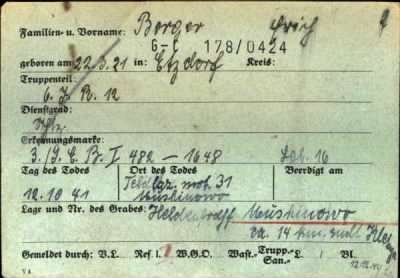 Familien- u. Vorname: Berger Erich
G-C 178/0424
geboren am 22.3.21 in: Etzdorf Kreis:
Truppenteil:
6. J. R. 12
Dienstgrad:
Erkennungsmarke:
3./J. E. B. I 482 - 1648
Tag des Todes Ort des Todes Beerdigt am
12.10.41 Feldlaz. mot. 31
Mushinowo
Lage und Nr. des Grabes: Mushinowo
ca. 14 km
Gemeldet durch: V.L. Ref. W.G.O. Wast. Trupp. L. Bl.
San.
12.12.41
V 4